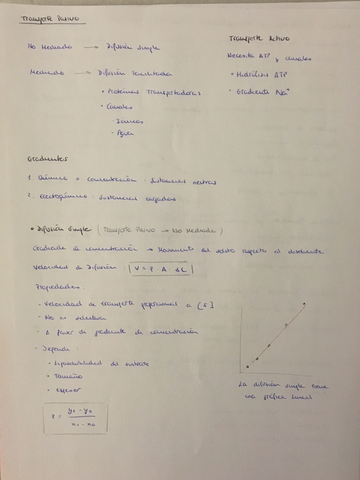 Transporte Pasivo
No Mediado → Difusión Simple
Mediado → Difusión Facilitada
• Proteínas Transportadoras
• Canales
- Iónicos
- Agua
Transporte Activo
Necesita ATP y canales
• Hidrólisis ATP
• Gradiente Na⁺
Gradientes
1. Químico o concentración: Sustancias neutras
2. Electroquímico: Sustancias cargadas
• Difusión Simple (Transporte Pasivo → No Mediado)
Gradiente de concentración → Movimiento del soluto respecto al disolvente
Velocidad de Difusión V = P · A · ΔC
Propiedades:
• Velocidad de transporte proporcional a [S]
• No es selectiva
• A favor de gradiente de concentración
• Depende:
• Liposolubilidad del sustrato
• Tamaño
• Espesor
P = y₁ - y₀ / x₁ - x₀
La difusión simple tiene
una gráfica lineal